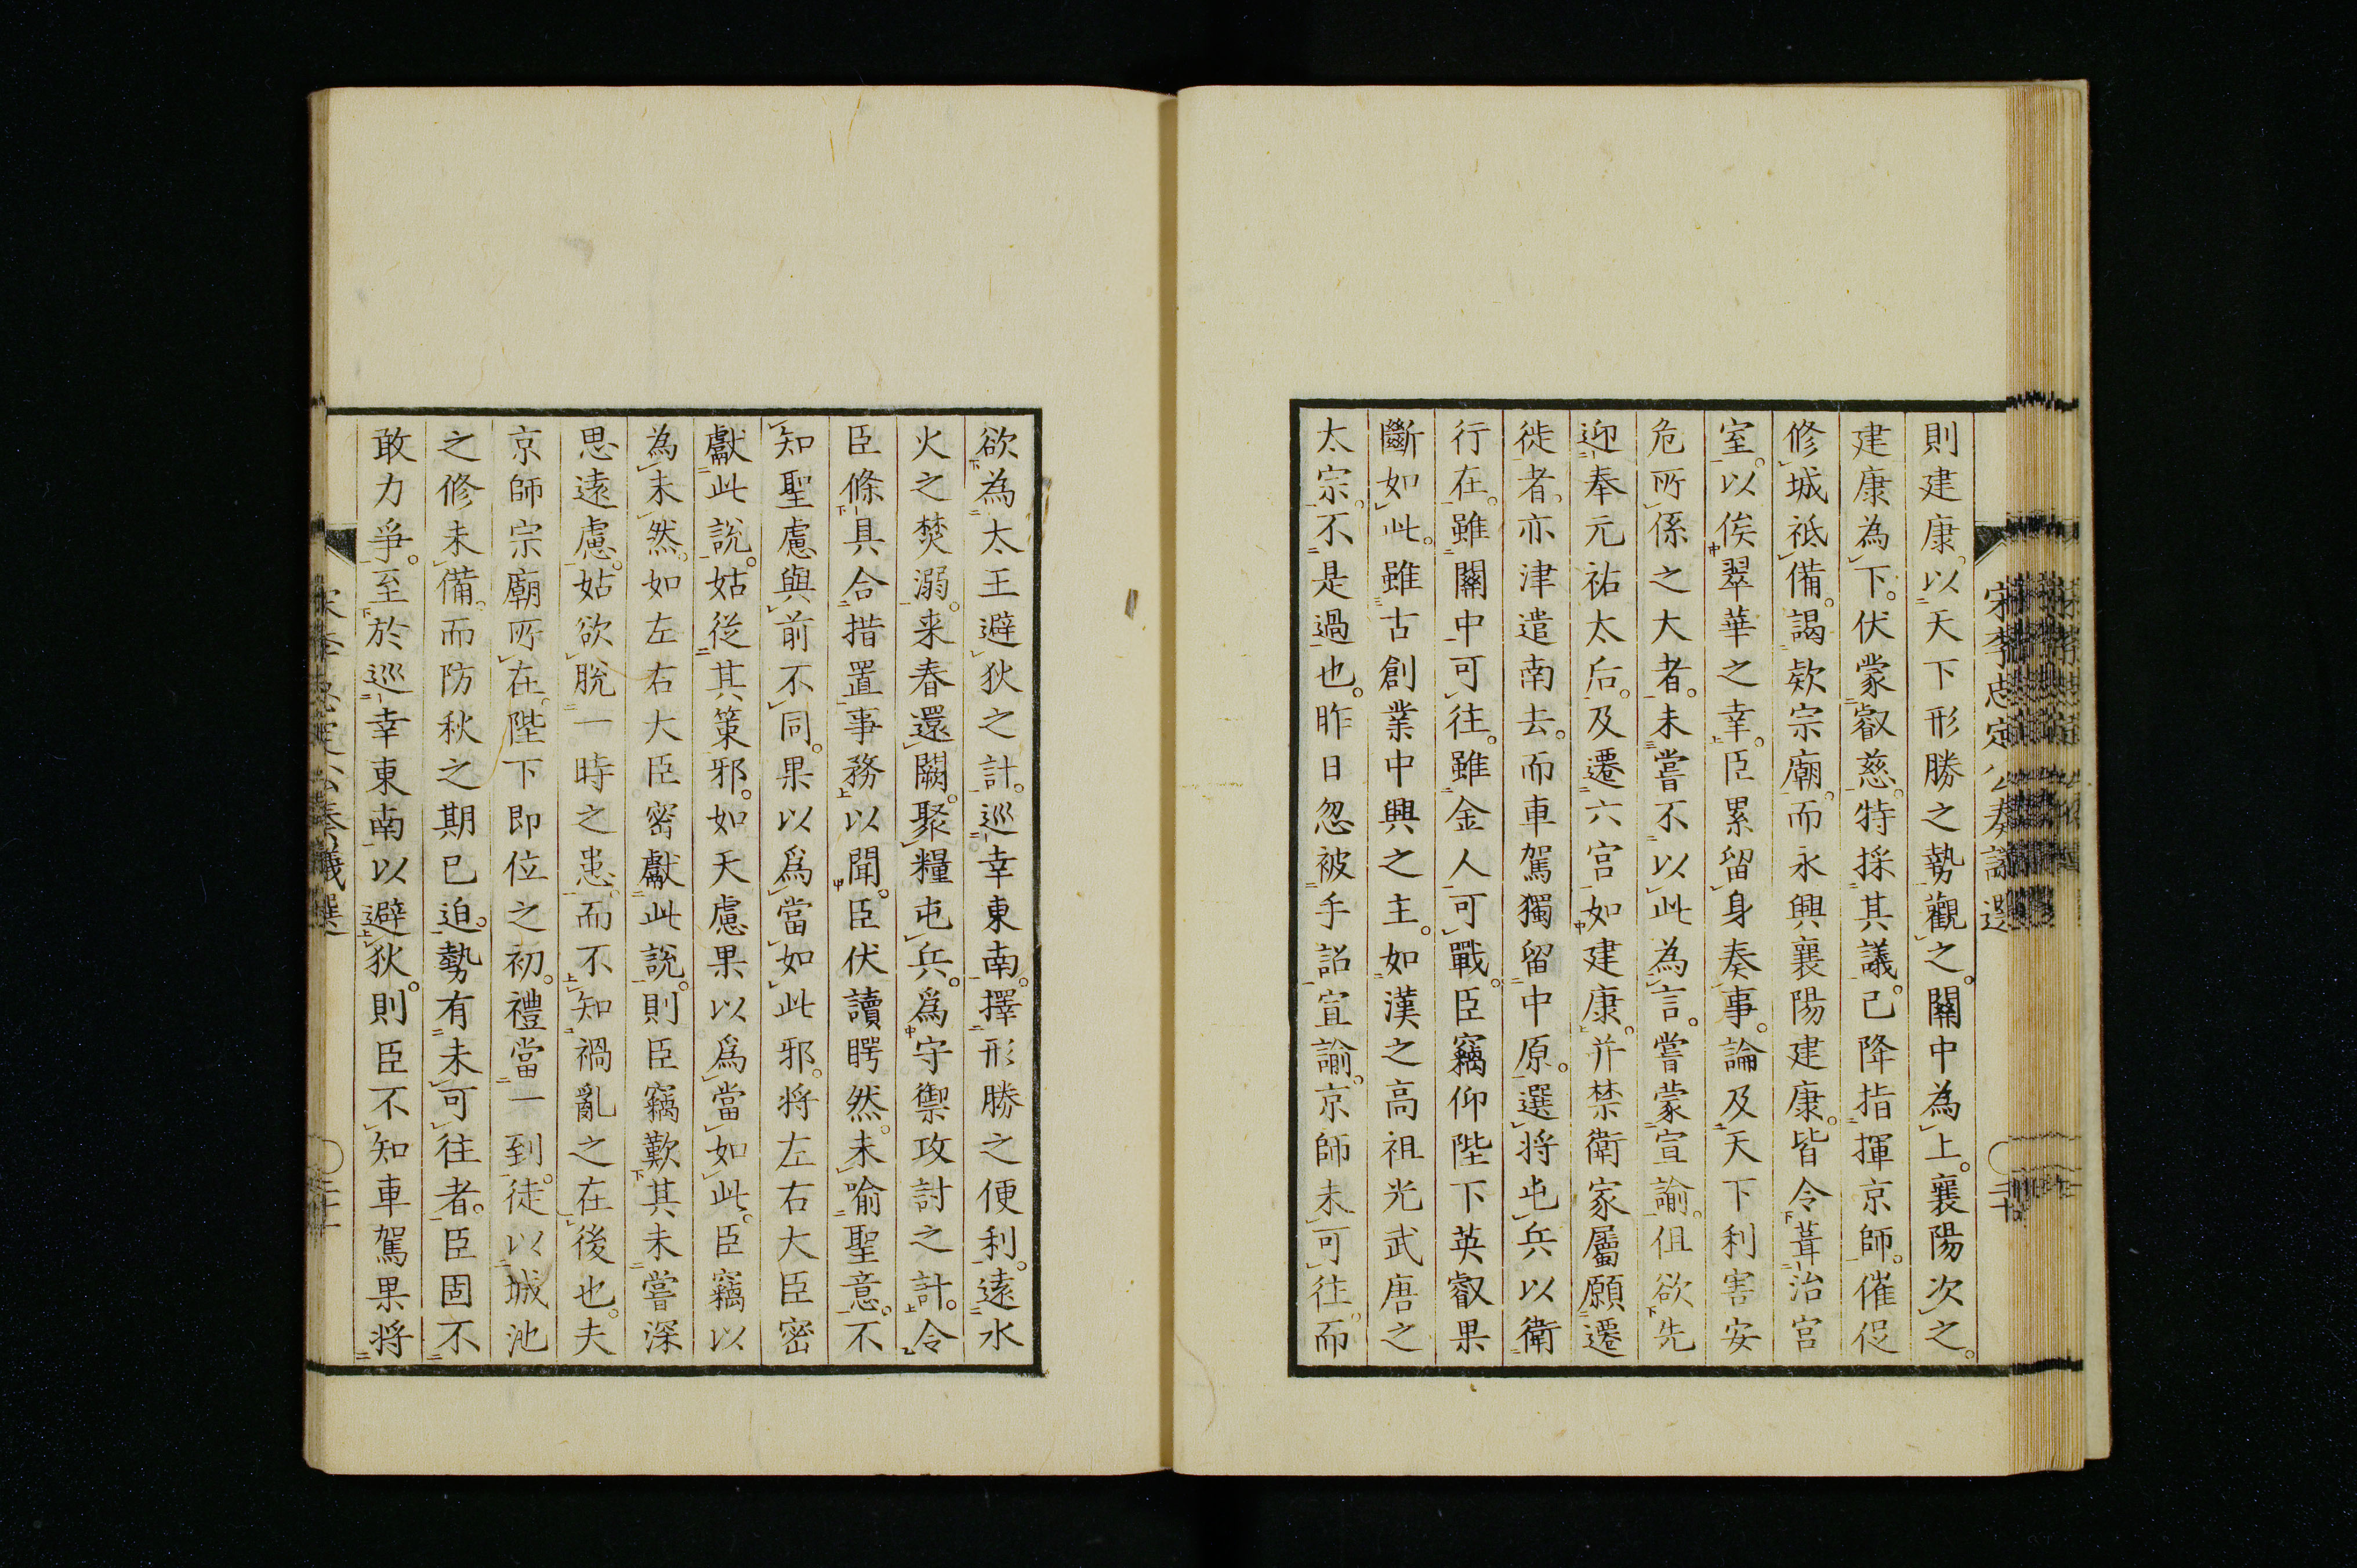 則建康。以天下形勝之勢觀之。關中為上。襄陽次之。
建康為下。伏蒙叡慈。特採其議。已降指揮京師。催促
修城祗備。謁欵宗廟。而永興襄陽建康。皆令葺治宮
室。以俟翠華之幸。臣累留身奏事。論及天下利害安
危所係之大者。未嘗不以此為言。嘗蒙宣諭。但欲先
迎奉元祐太后。及遷六宮如建康。并禁衛家屬願遷
徙者。亦津遣南去。而車駕獨留中原。選将屯兵以衛
行在。雖關中可往。雖金人可戰。臣竊仰陛下英叡果
斷如此。雖古創業中興之主。如漢之高祖光武唐之
太宗。不是過也。昨日忽被手詔宣諭。京師未可往。而
欲為太王避狄之計。巡幸東南。擇形勝之便利。遠水
火之焚溺。来春還闕。聚糧屯兵。爲守禦攻討之計。令
臣條具合措置事務以聞。臣伏讀睯然。未喻聖意。不
知聖慮與前不同。果以爲當如此邪。将左右大臣密
獻此說。姑從其策邪。如天慮果以爲當如此。臣竊以
為未然。如左右大臣密獻此說。則臣竊歎其未嘗深
思遠慮。姑欲脫一時之患。而不知禍亂之在後也。夫
京師宗廟所在。陛下即位之初。禮當一到。徒以城池
之修未備。而防秋之期已迫。勢有未可往者。臣固不
敢力爭。至於巡幸東南以避狄。則臣不知車駕果将